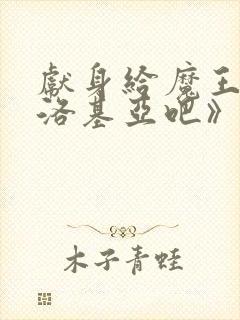 獻身給魔王
洛基亞吧》
木子青蛙